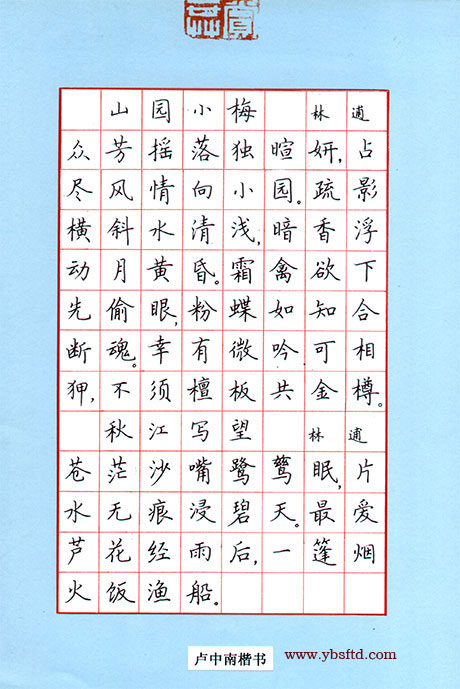 山园小梅 林逋
众芳摇落独暄妍,占
尽风情向小园。疏影
横斜水清浅,暗香浮
动月黄昏。霜禽欲下
先偷眼,粉蝶如知合
断魂。幸有微吟可相
狎,不须檀板共金樽。
秋江写望 林逋
苍茫沙嘴鹭鸶眠,片
水无痕浸碧天。最爱
芦花经雨后,一篷烟
火饭渔船。
卢中南楷书 www.ybsftd.com